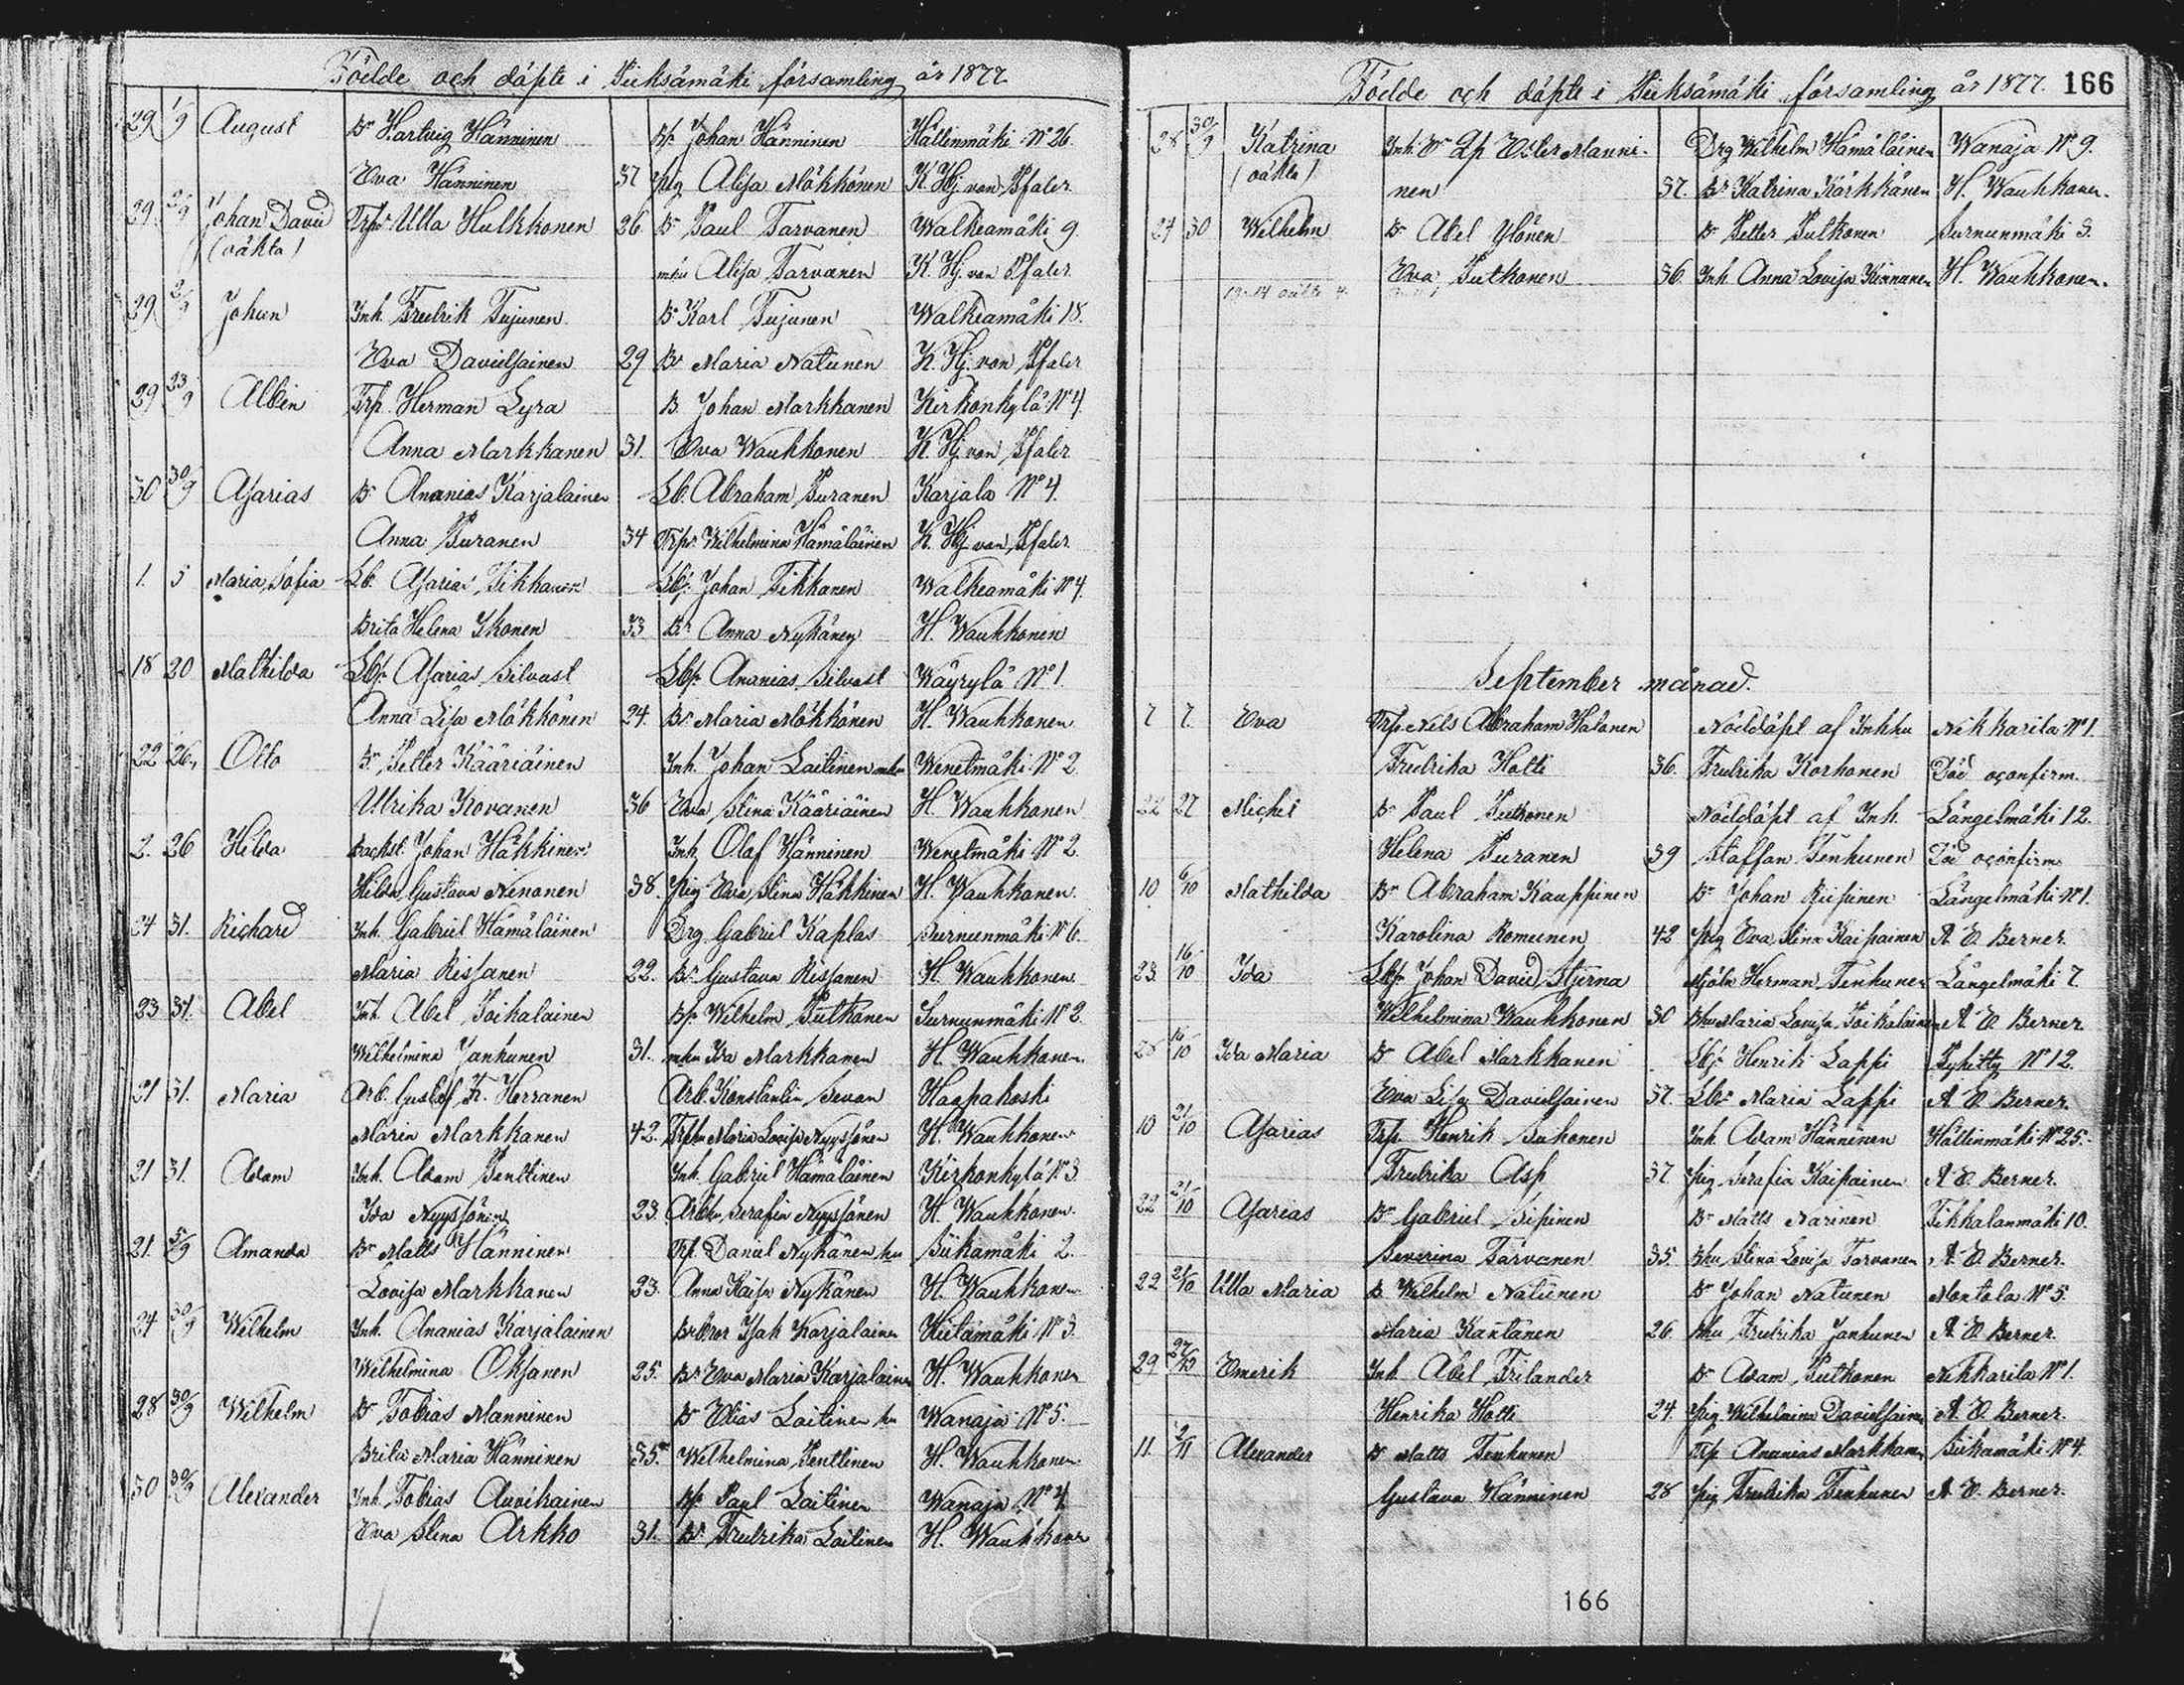 Födde och döpte i Pieksämäki församling år 1877.
29 1/9 August Br Hartvig Hänninen Bf. Johan Hänninen Hällinmäki No 26.
Eva Hänninen 37 pig Alisa Mökkönen K. Hj. von Pfaler
29 2/9 Johan David Trpr Ulla Hulkkonen 26. Br Paul Tarvanen Walkeamäki 9.
(oäkta) Alisa Tarvanen K. Hj. von Pfaler
29 2/9 Johan Inh. Fredrik Tujunen Br Karl Tujunen Walkeamäki 18.
Eva Davidsainen 29 Br Maria Natunen K. Hj. von Pfaler
29 23/9 Albin Trp. Herman Lyra B. Johan Markkanen Kirkonkylä No 4.
Anna Markkanen 31. Eva Wauhkonen K. Hj. von Pfaler
30 30/9 Asarias Br Ananias Karjalainen Lb. Abraham Puranen Karjala No 4.
Anna Puranen 34 Trpr Wilhelmina Hämäläinen K. Hj. von Pfaler.
1. 5 Maria Sofia Lb. Asarias Tikkanen Lbf. Johan Tikkanen Walkeamäki No 4.
Brita Helena Ikonen 33 Br Anna Nykänen H. Wauhkonen
18 20 Mathilda Lbf. Asarias Silvast Lbf. Ananias Silvast Wäyrylä No 1.
Anna Lisa Mökkönen 24. Br Maria Mökkönen H. Wauhkonen
22 26. Otto Br Petter Kääriäinen Inh. Johan Laitinen Wenetmäki No 2.
Ulrika Kovanen 36 Eva Stina Kääriäinen H. Wauhkonen
2. 26 Hilda Backst. Johan Häkkinen Inh. Olof Hänninen Wenetmäki No 2.
Hilda Gustava Nenonen 38. pig Eva Stina Häkkinen H. Wauhkonen.
24 31. Richard Inh. Gabriel Hämäläinen Drg Gabriel Kaplas Surnunmäki No 6.
Maria Rissanen 22. Br Gustava Rissanen H. Wauhkonen.
23 31. Abel Inh. Abel Poikalainen Bf. Wilhelm Putkonen Surnunmäki No 2.
Wilhelmina Janhunen 31. Ida Markkanen H. Wauhkonen.
21 31. Maria Arb. Gustaf Fr. Herranen Arb. Konstantin Sevon Haapakoski
Maria Markkanen 42. Maria Lovisa Nyyssönen H. Wauhkonen
21 31. Adam Inh. Adam Penttinen Inh. Gabriel Hämäläinen Kirkonkylä No 3.
Ida Nyyssönen 23. Serafia Nyyssönen H. Wauhkonen.
21. 5/9 Amanda Br Matts Hänninen Trp. Daniel Nykänen hu Siikamäki 2.
Lovisa Markkanen 23. Anna Kaisa Nykänen H. Wauhkonen
24 30/9 Wilhelm Inh. Ananias Karjalainen Isak Karjalainen Hietämäki No 3.
Wilhelmina Oksanen 25. Br Eva Maria Karjalainen H. Wauhkonen
28 30/9 Wilhelm Br Tobias Manninen Br Elias Laitinen hu Wanaja No 5.
Brita Maria Hänninen 35. Wilhelmina Penttinen H. Wauhkonen
30 30/9 Alexander Inh. Tobias Auvikainen Bf. Paul Laitinen Wanaja No 4.
Eva Stina Arkko 31. Br Fredrika Laitinen H. Wauhkonen
Födde och döpte i Pieksämäki församling år 1877. 166
28 30/9 Katrina Inh. Ester Manni- Drg Wilhelm Hämäläinen Wanaja No 9.
(oäkta) nen 37. Br Katrina Kärkkänen H. Wauhkonen.
24 30 Wilhelm Br Abel Ylönen Br Petter Putkonen Surnunmäki 3.
Eva Putkonen 36. Inh. Anna Lovisa Kinnunen H. Wauhkonen.
September månad.
7 7. Eva Trp. Nils Abraham Halonen Nöddöpt af Inhhu Nikkarila No 1.
Fredrika Holti 36. Fredrika Korhonen Död oconfirm.
22 27 Michel Br Paul Putkonen Nöddöpt af Inh. Längelmäki 12.
Helena Puranen 39 Staffan Tenhunen Död oconfirm
10 6/10 Mathilda Br Abraham Kauppinen Br Johan Riipinen Längelmäki No 1.
Karolina Romunen 42 pig Eva Stina Kaipainen A. E. Berner.
23. 16/10 Ida Lbf. Johan David Stjerna Mjöln Herman Tenhunen Längelmäki 7.
Wilhelmina Wauhkonen 30 Bhu Maria Lovisa Poikalainen A. E. Berner
16/10 Ida Maria Br Abel Markkanen Lbf. Henrik Lappi Pyhitty No 12.
Eva Lisa Davidsainen 37. Lbr Maria Lappi A. E. Berner.
10 21/10 Asarias Trp. Henrik Suhonen Inh. Adam Hänninen Hällinmäki No 25.
Fredrika Asp 37 pig Serafia Kaipainen A. E. Berner.
22 21/10 Asarias Br Gabriel Sipinen Br Matts Närinen Tikkalanmäki 10.
Severina Tarvanen 35. Bhu Stina Lovisa Tarvanen A. E. Berner.
22 21/10 Ulla Maria B. Wilhelm Natunen Br Johan Natunen Montola No 5.
Maria Kantanen 26. Bhu Fredrika Janhunen A. E. Berner.
29 27/10 Emerik Inh. Abel Frilander Br Adam Putkonen Nikkarila No 1.
Henrika Holti 24. pig Wilhelmina Davidsainen A. E. Berner.
11. 2/11 Alexander Br Matts Tenhunen Trp Ananias Markkanen Siikamäki No 4.
Gustava Hänninen 28 pig Fredrika Tenhunen A. E. Berner.
166